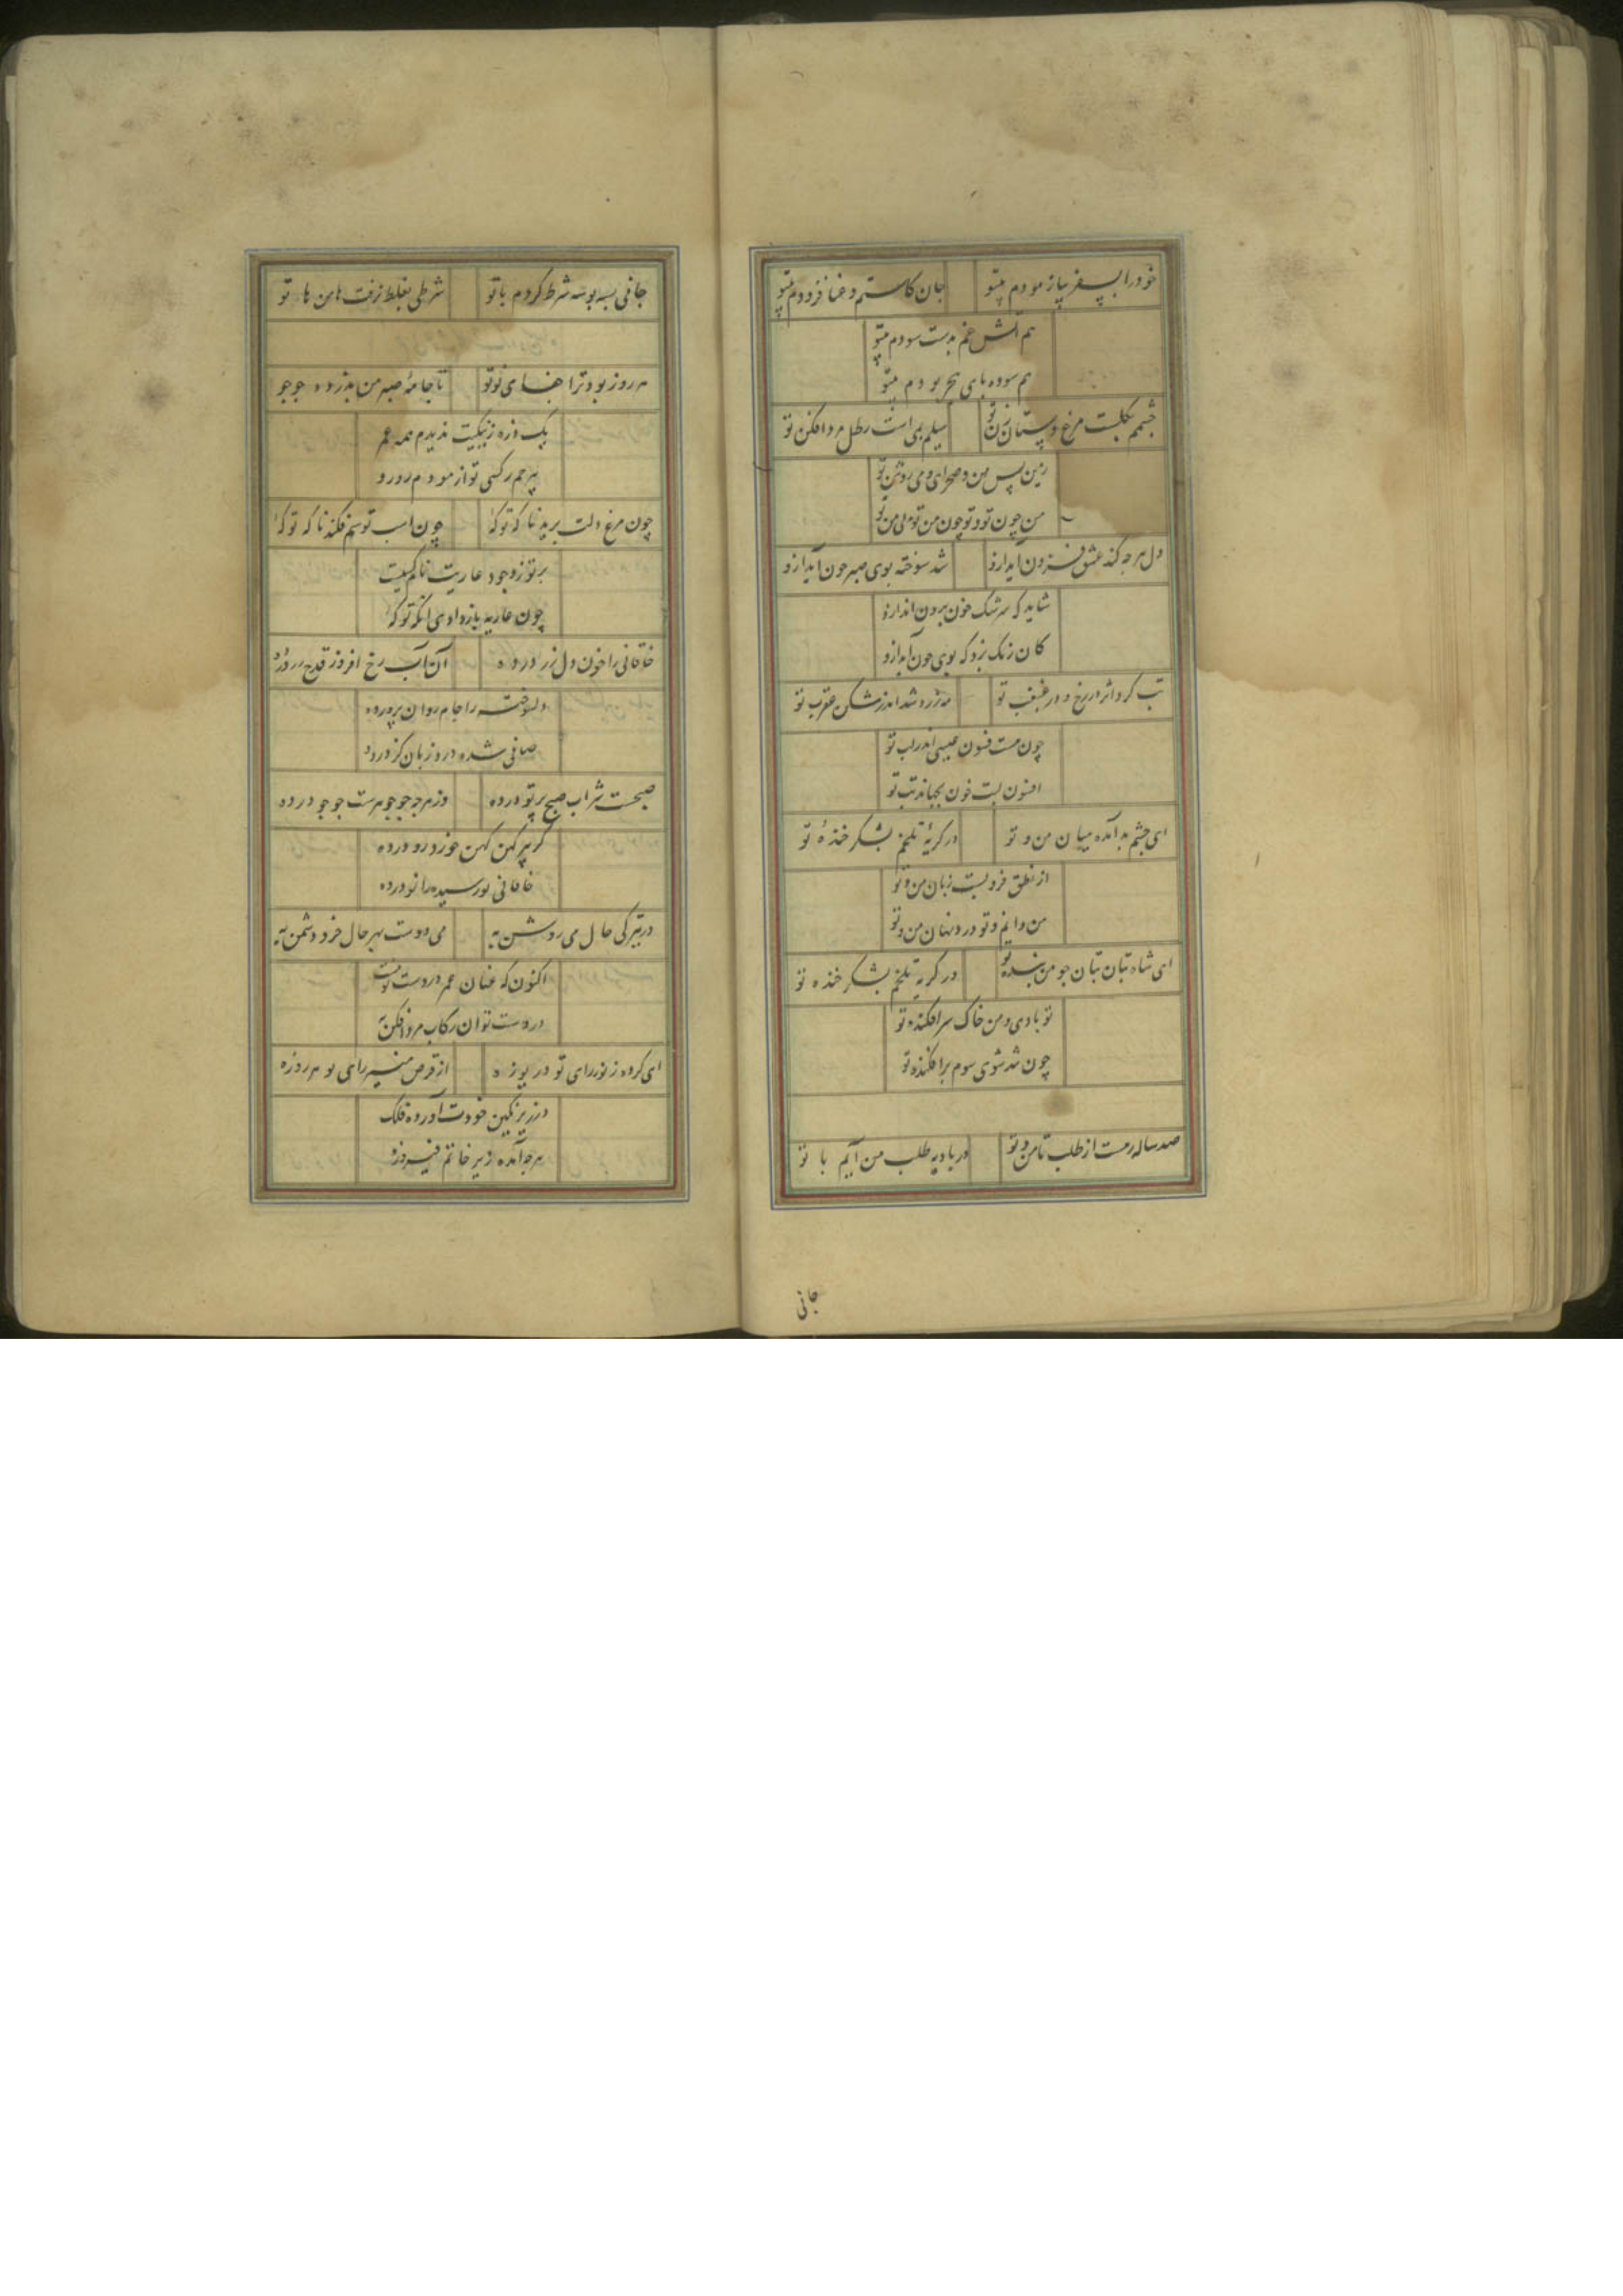 خود را بسفر بیازمودم بیتو
جان کاستم و عنا فزودم بیتو
هم آتش غم بدست سودم بیتو
هم سوده پای هجر بودم بیتو
چشمم بگلست و مرغ دستان زن تو
میلم بمی است رطل مرد افکن تو
زین پس من و صحرای و می روشن تو
من چون تو و تو چون من تو بی من تو
دل هرچه کند عشق فزون آید ازو
شد سوخته بوی صبر چون آید ازو
شاید که سرشک خون برون آید ازو
کان رنگ بزد که بوی خون آید ازو
تب کرد اثر در رخ و در غبغب تو
مه زرد شد اندر شکن عقرب تو
چون هست فسون عیسی اندر لب تو
افسون لبت چون بجهاند تب تو
ای چشم بد آمده میان من و تو
در گریه تلخم بشکر خنده تو
از نطق فرو بست زبان من و تو
من دانم و تو درد نهان من و تو
ای شاه بتان بتان چو من بنده تو
در گریه تلخم بشکر خنده تو
تو بادی و من خاک سرافکنده تو
چون شد شوی سوم براکنده تو
صد ساله رهست از طلب تا من و تو
در بادیه طلب من آیم با تو
جانی
جانی بسه بوسه شرط کردم با تو
شرطی بغلط نرفت هابن ها تو
هر روز بود ترا جفای نو نو
تا جامه صبر من بدرد جو جو
یک ذره ز نیکیت ندیدم همه عمر
بیرحم کسی تو آزمودم رو رو
چون مرغ دلت برید ناگه تو که
چون اسب تو سم فکند ناگه تو که
بر تو ز وجود عاریت نام کسیست
چون عاریه باز دادی آنگه تو که
خاقانی را خون دل رز در ده
آن آب رخ افروز قدح
دلسوخته را جام روان پرور ده
صافی شده در و زبان گز در ده
صبحست شراب صبح پرتو در ده
وز هرچه جو جوهرست جو جو در ده
گر پیر کهن کهن خورد رو در ده
خاقانی نورسیده را نو در ده
در تیرگی حال می روشن به
می دوست بهر حال خرد دشمن به
اکنون که عنان عمر در دست تو نیست
در دست تو آن رکاب مرد افکن به
ای کرده ز نور رای تو دریوزه
از قرص منیر رای تو هر روزه
در زیر نگین جودت آورده فلک
هرچ آمده زیر خاتم فیروزه